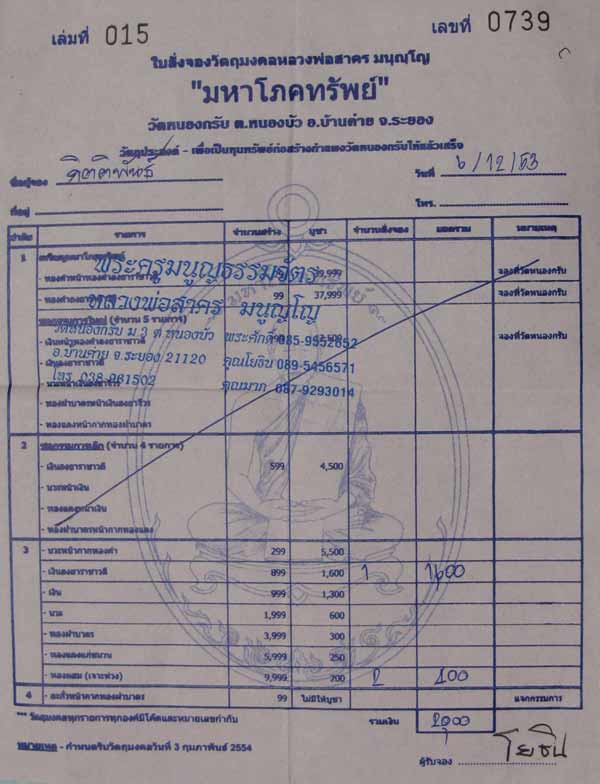 เล่มที่ 015
เลขที่ 0739
ใบสั่งจองวัตถุมงคลหลวงพ่อสาคร มนุญโญ
"มหาโภคทรัพย์"
วัดหนองกรับ ต.หนองบัว อ.บ้านค่าย จ.ระยอง
วัตถุประสงค์ - เพื่อเป็นทุนทรัพย์ก่อสร้างกำแพงวัดหนองกรับให้แล้วเสร็จ
ชื่อผู้จอง กิตติพันธ์ วันที่ 6/12/53
ที่อยู่ โทร.
ลำดับ รายการ จำนวนสร้าง บูชา จำนวนสั่งจอง ยอดรวม หมายเหตุ
1
พระครูมนูญธรรมวัตร
จองที่วัดหนองกรับ
99 37,999 จองที่วัดหนองกรับ
หลวงพ่อสาคร มนุญโญ
(จำนวน 5 รายการ)
จองที่วัดหนองกรับ
วัดหนองกรับ ม.3 ต.หนองบัว พระศักดิ์ 085-9552852
อ.บ้านค่าย จ.ระยอง 21120 คุณโยธิน 089-5456571
โทร. 038-961502 คุณมาก 087-9293014
- ทองฝาบาตรหน้าเงินองชาร์วิร
- ทองแดงหน้ากากทองฝาบาตร
2 ชุดกรรมการเล็ก (จำนวน 4 รายการ)
- เงินลงยาราชาวดี 599 4,500
- นวะหน้าเงิน
- ทองแดงหน้าเงิน
- ทองฝาบาตรหน้ากากทองแดง
3 - นวะหน้ากากทองคำ 299 5,500
- เงินลงยาราชาวดี 899 1,600 1 1600
- เงิน 999 1,300
- นวะ 1,999 600
- ทองฝาบาตร 3,999 300
- ทองแดงแก่ชนวน 5,999 250
- ทองผสม (เจาะห่วง) 9,999 200 2 400
4 - ตะกั่วหน้ากากทองฝาบาตร 99 ไม่มีให้บูชา แจกกรรมการ
*** วัตถุมงคลทุกรายการทุกองค์มีโค้ดและหมายเลขกำกับ รวมเงิน 2000
หมายเหตุ - กำหนดรับวัตถุมงคลวันที่ 3 กุมภาพันธ์ 2554
ผู้รับจอง โยธิน